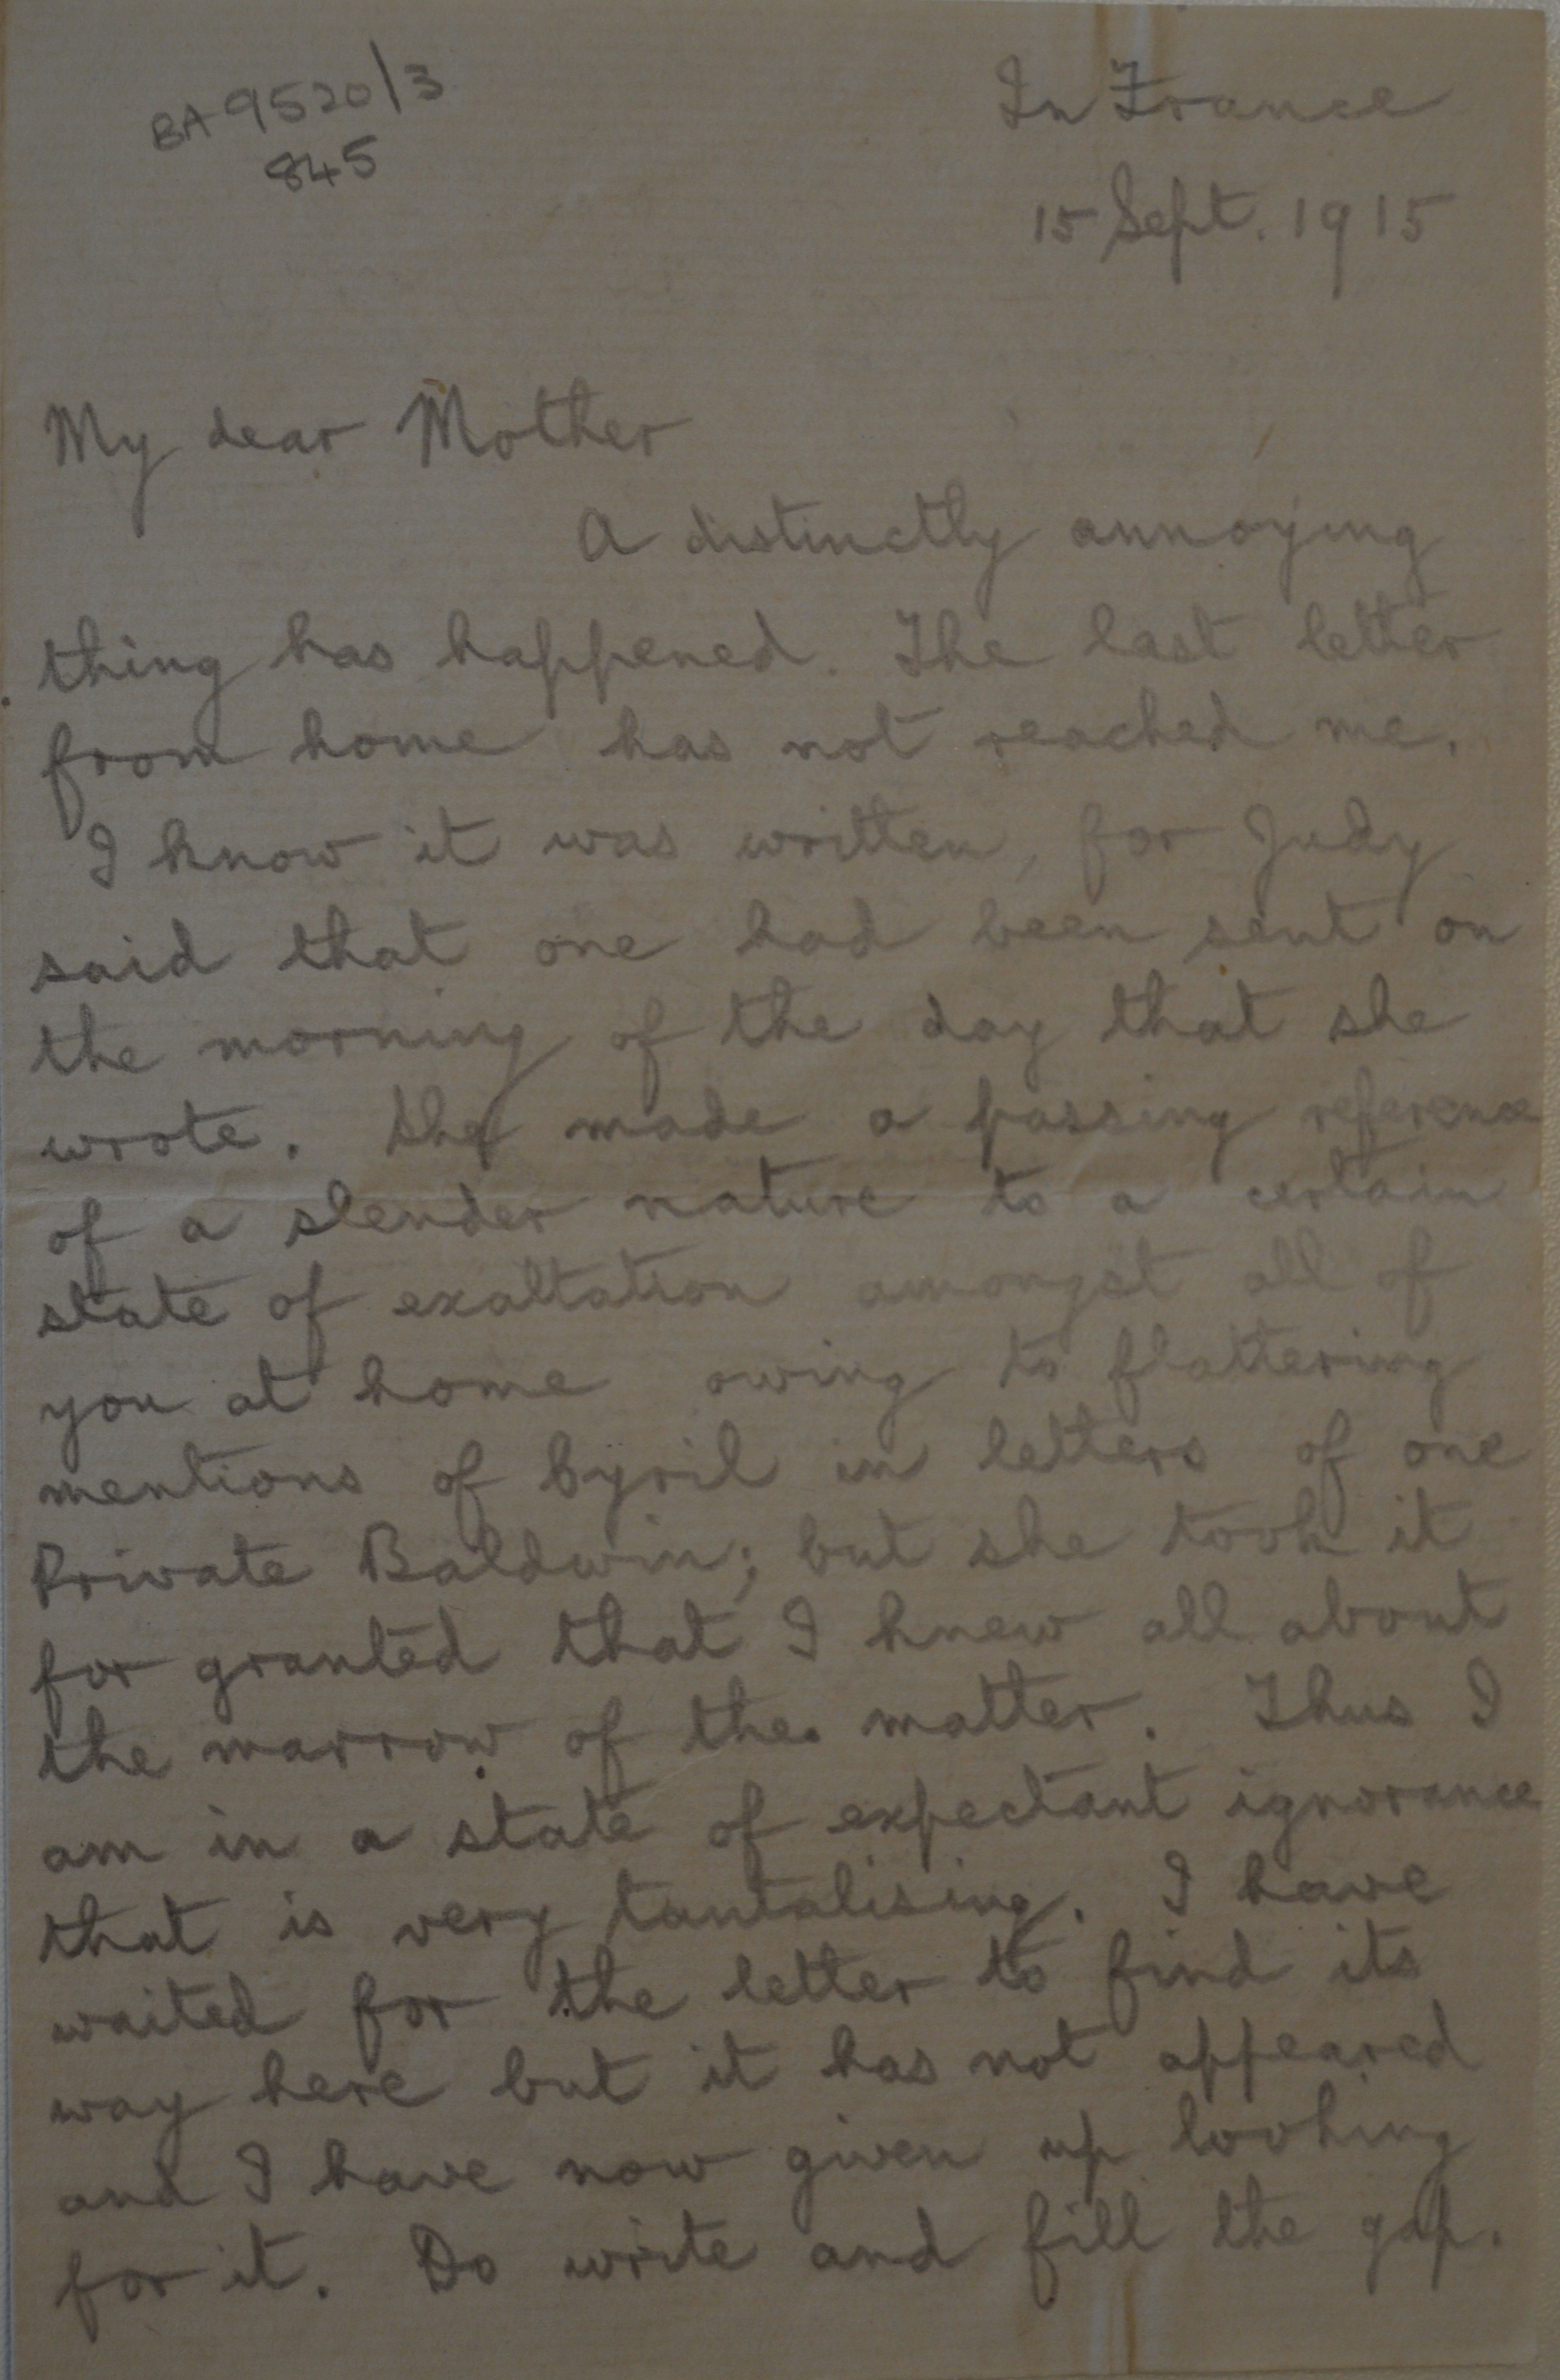 BA 9520/3
845
In France
15 Sept. 1915
My dear Mother
A distinctly annoying
thing has happened. The last letter
from home has not reached me.
I know it was written, for Judy
said that one had been sent on
the morning of the day that she
wrote. She made a passing reference
of a slender nature to a certain
state of exaltation amongst all of
you at home owing to flattering
mentions of Cyril in letters of one
Private Baldwin; but she took it
for granted that I knew all about
the marrow of the matter. Thus I
am in a state of expectant ignorance
that is very tantalising. I have
waited for the letter to find its
way here but it has not appeared
and I have now given up looking
for it. Do write and fill the gap.